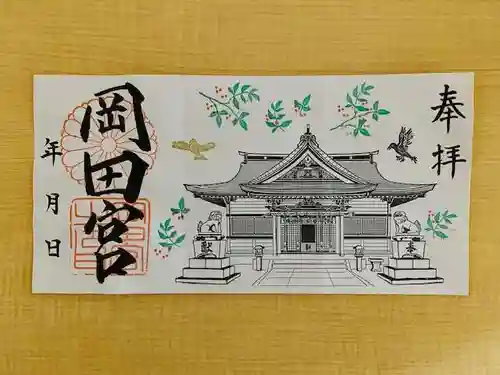 奉拝
岡田宮
年月日
獻
奉